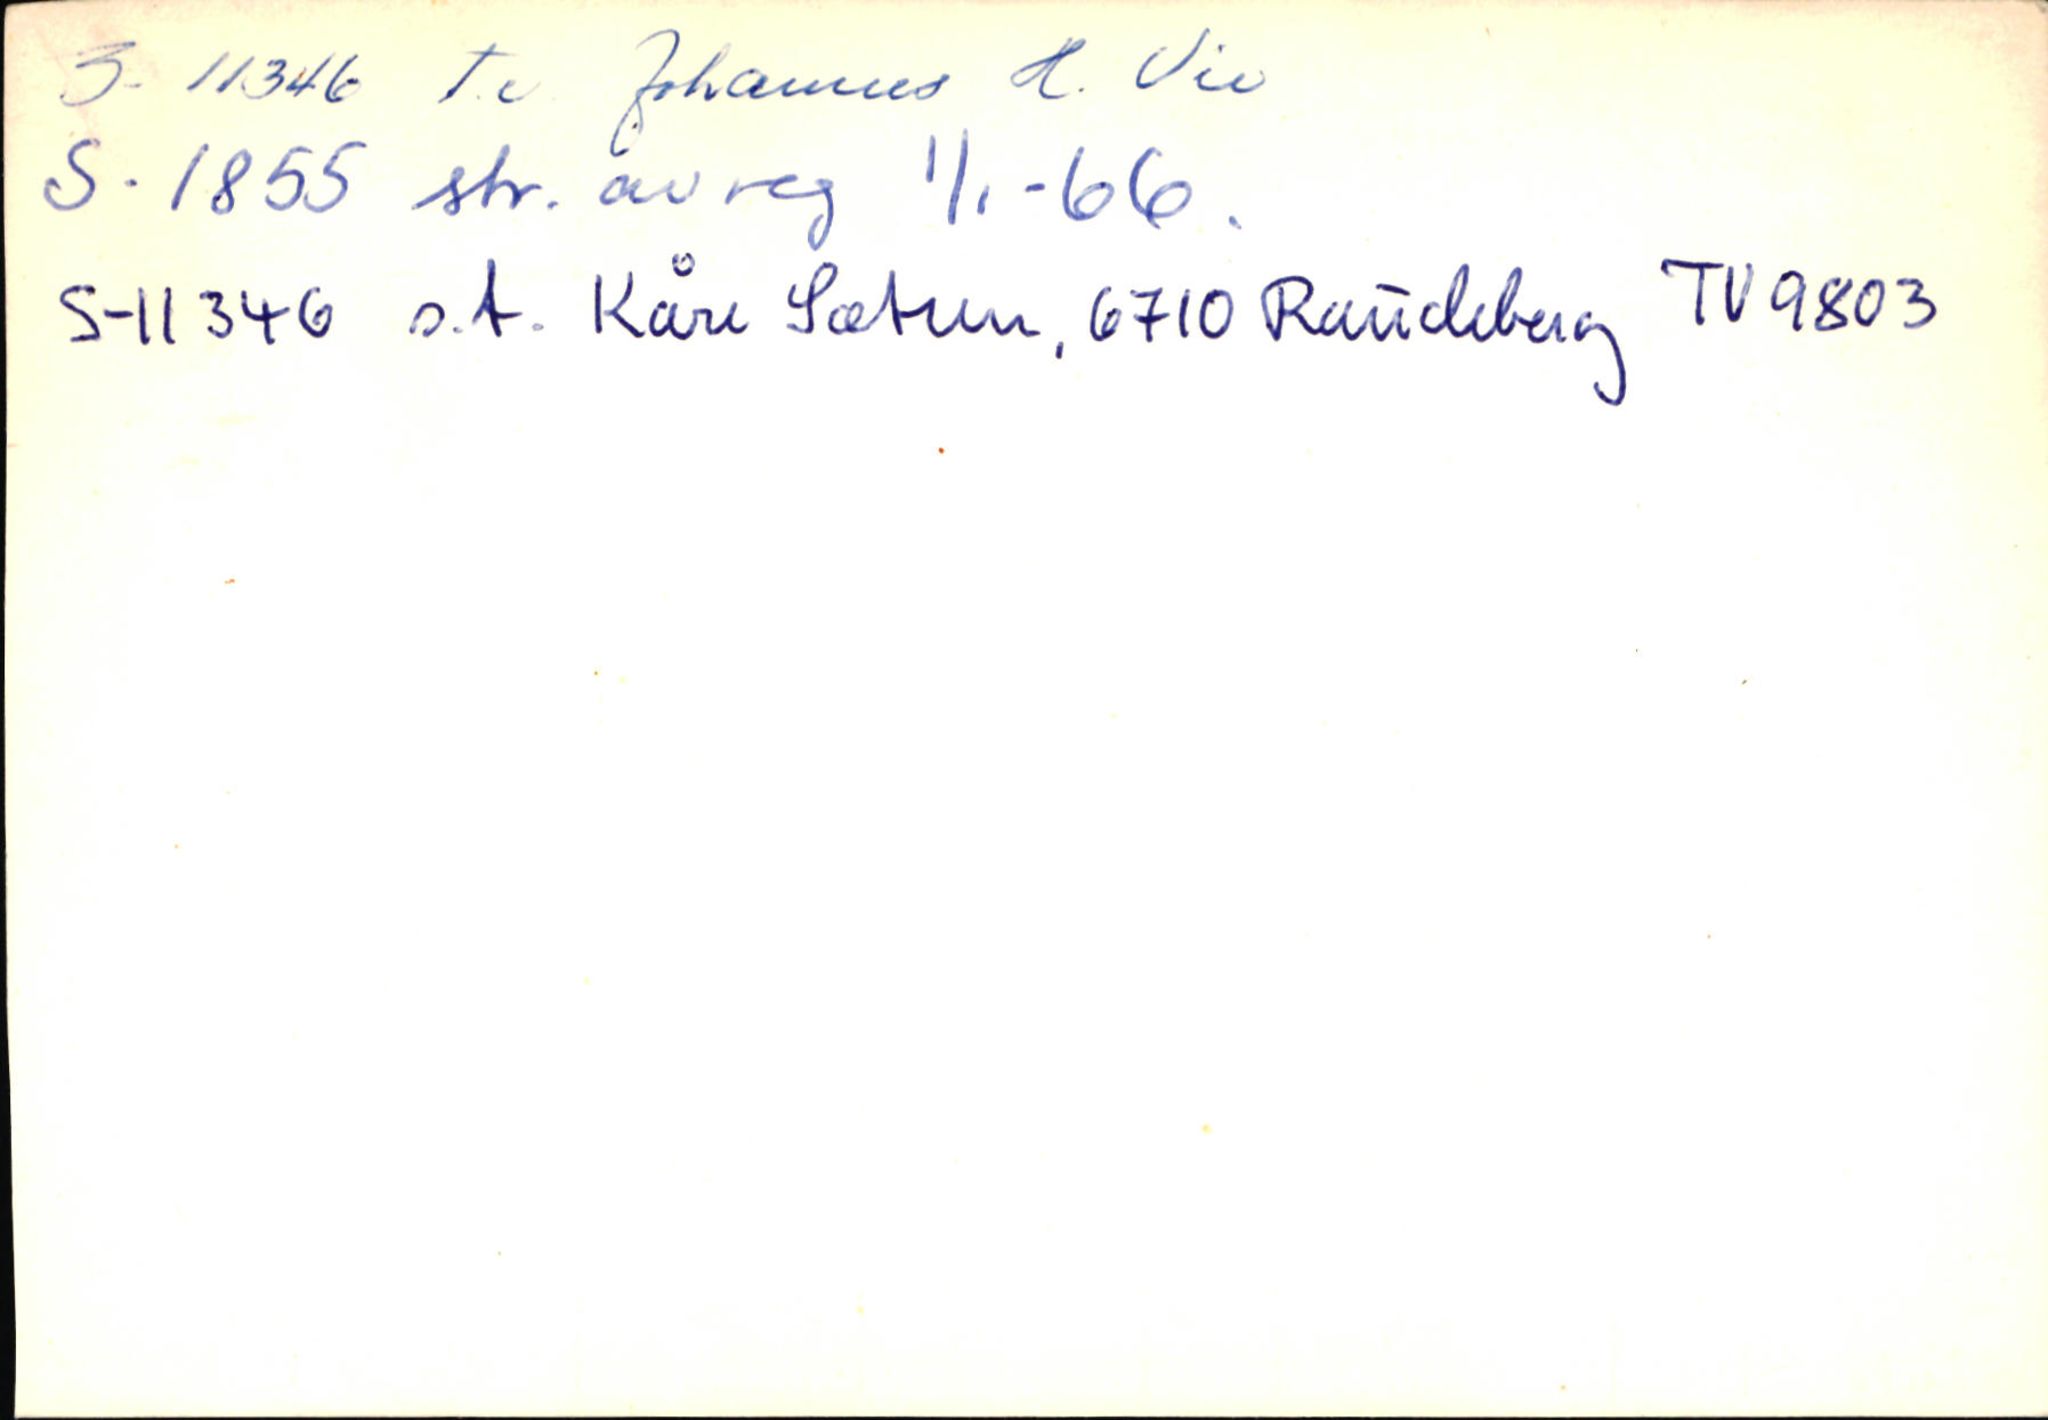 S-11346 t.e. Johannes H. Vie
S-1855 str. av reg 1/1-66.
S-11346 s.t. Kåre Sætren, 6710 Raudeberg TV9803